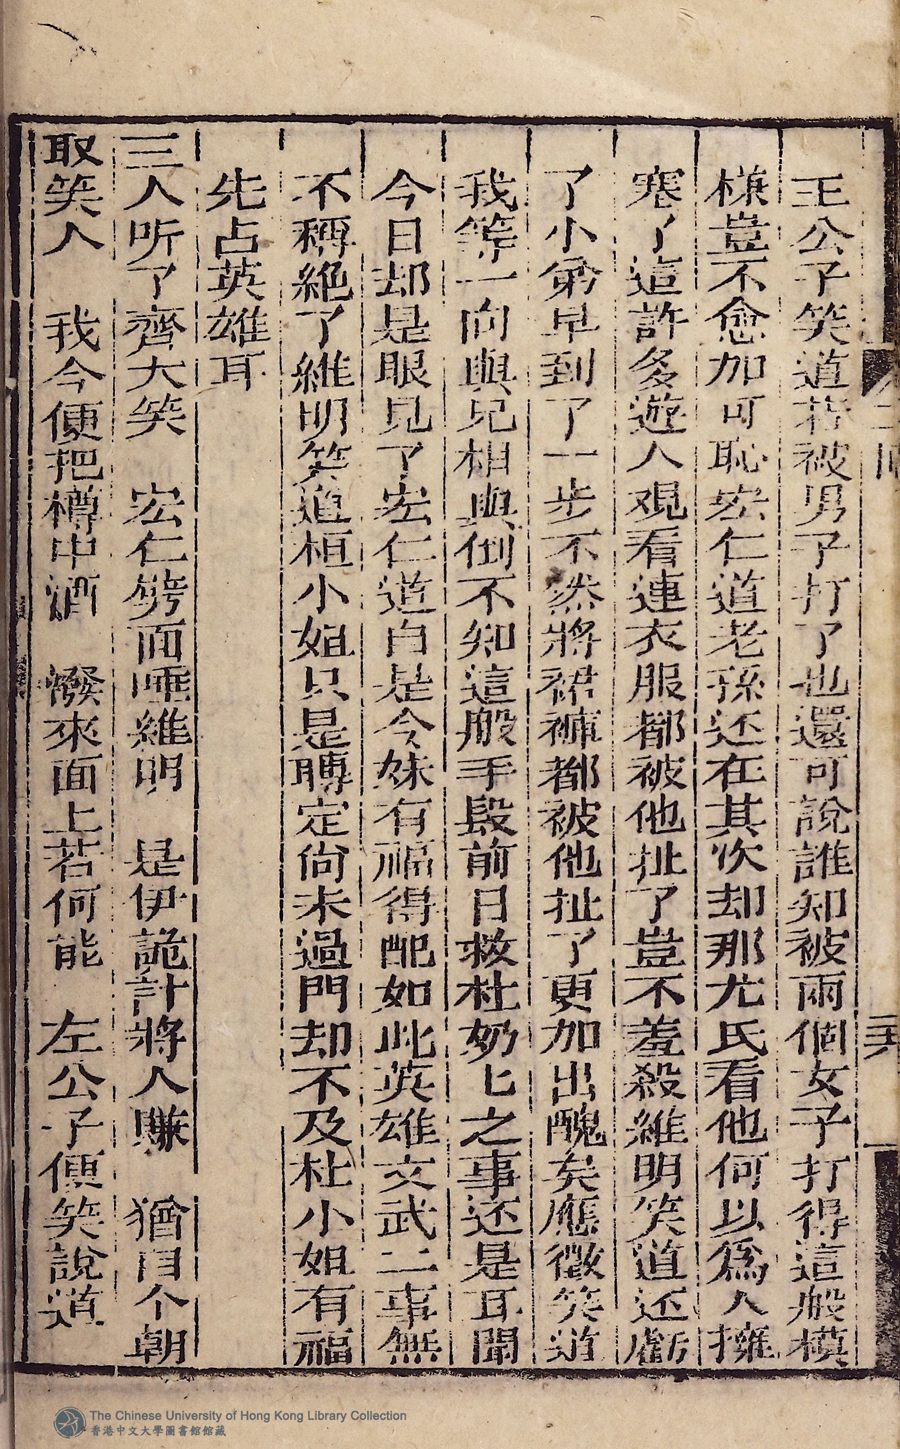 王公子笑道若被男子打了也還可說誰知被兩個女子打得這般模
樣豈不愈加可恥宏仁道老孫还在其次却那尤氏看他何以爲人擁
塞了這許多遊人观看連衣服都被他扯了豈不羞殺維明笑道还虧
了小弟早到了一步不然將裙褲都被他扯了更加出醜矣應徵笑道
我等一向與兄相與倒不知這般手段前日救杜奶匕之事还是耳聞
今日却是眼見了宏仁道自是令妹有福得配如此英雄文武二事無
不稱絕了維明笑道桓小姐只是聘定尙未過門却不及杜小姐有福
先占英雄耳
三人听了齊大笑　宏仁劳面唾維明　是伊詭計將人賺　猶自个朝
取笑人　我今便把樽中酒　潑來面上若何能　左公子便笑說道
二回
The Chinese University of Hong Kong Library Collection
香港中文大學圖書館館藏